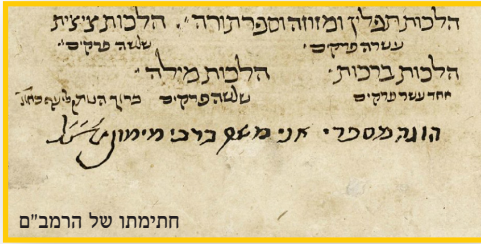 הלכות תפלין ומזוזה וספר תורה׳׳. הלכות ציצית
עשרה פרקים׳ שלשה פרקים׳׳
הלכות ברכות׳ הלכות מילה׳׳
אחד עשר פרקים שלשה פרקים ברוך
הוגה מספרי אני משה ברבי מימון
חתימתו של הרמב"ם